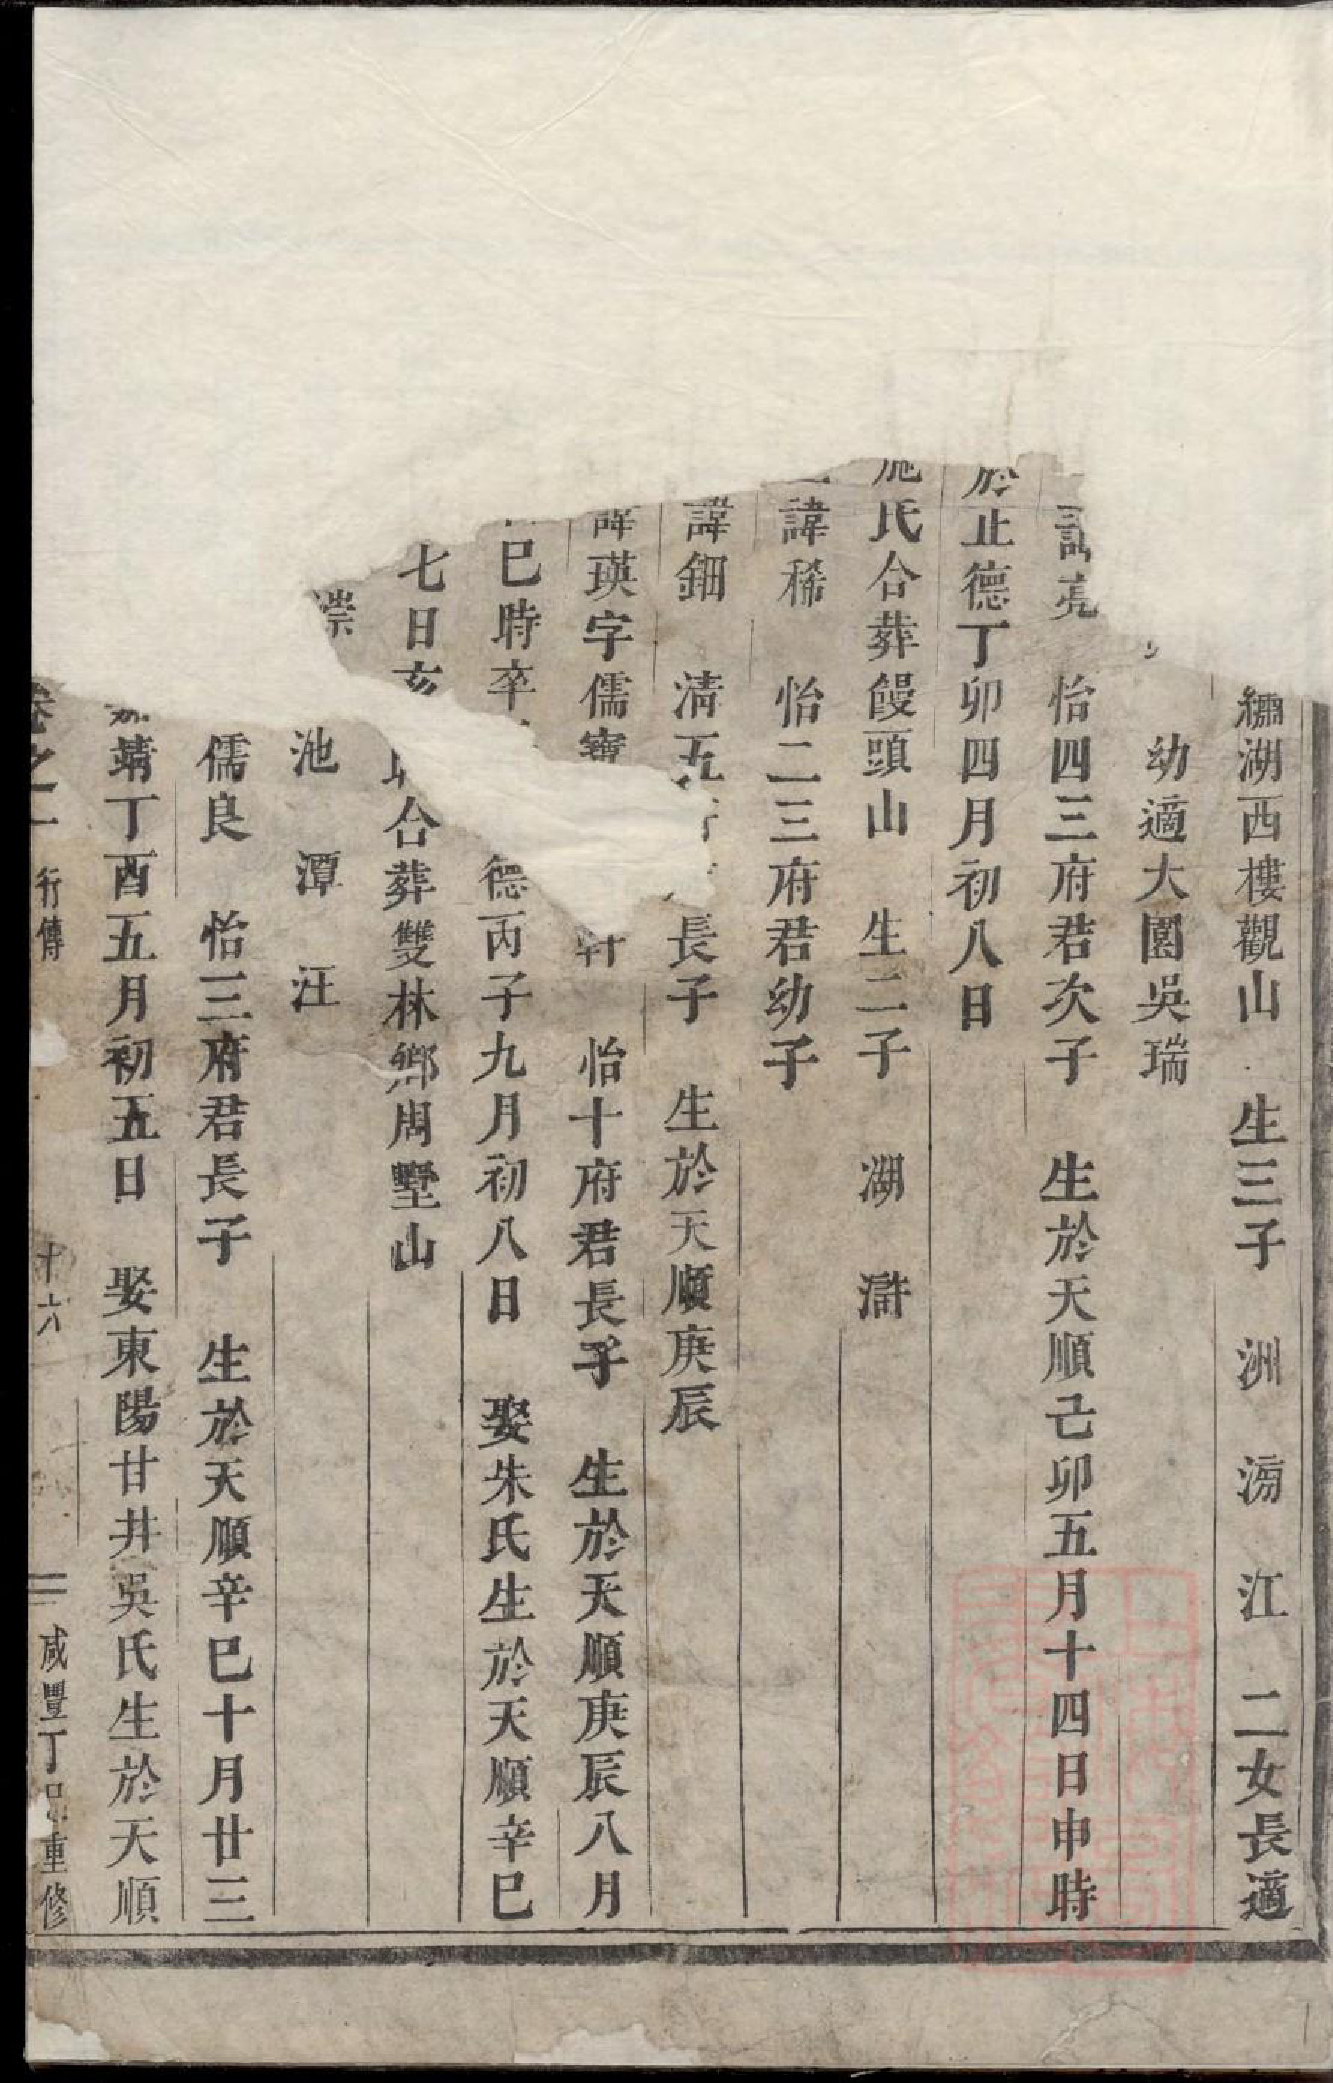 繡湖西樓觀山 生三子 洲 滂 江 二女長適
幼適大園吳瑞
亮 怡四三府君次子 生於天順己卯五月十四日申時
於正德丁卯四月初八日
施氏合葬饅頭山 生二子 湖 滸
諱稀 怡二三府君幼子
諱鈿 清五 長子 生於天順庚辰
諱瑛字儒寶 軒 怡十府君長子 生於天順庚辰八月
巳時卒 德丙子九月初八日 娶朱氏生於天順辛巳
七日亥 合葬雙林鄉周墅山
池 潭 汪
儒良 怡三府君長子 生於天順辛巳十月廿三
嘉靖丁酉五月初五日 娶東陽甘井吳氏生於天順
卷之一 行傳 十六 咸豐丁巳重修